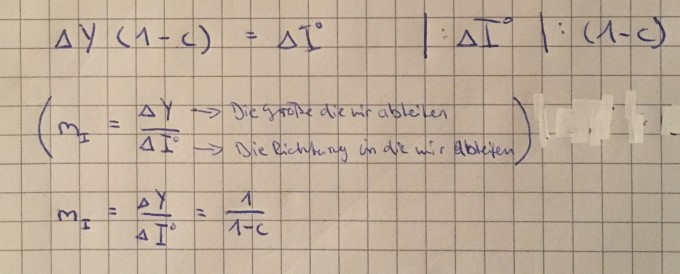 ΔY (1-c) = ΔI° |: ΔI° |: (1-c)
(m_I = ΔY/ΔI° → Die Größe die wir ableiten → Die Richtung in die wir ableiten)
m_I = ΔY/ΔI° = 1/1-c